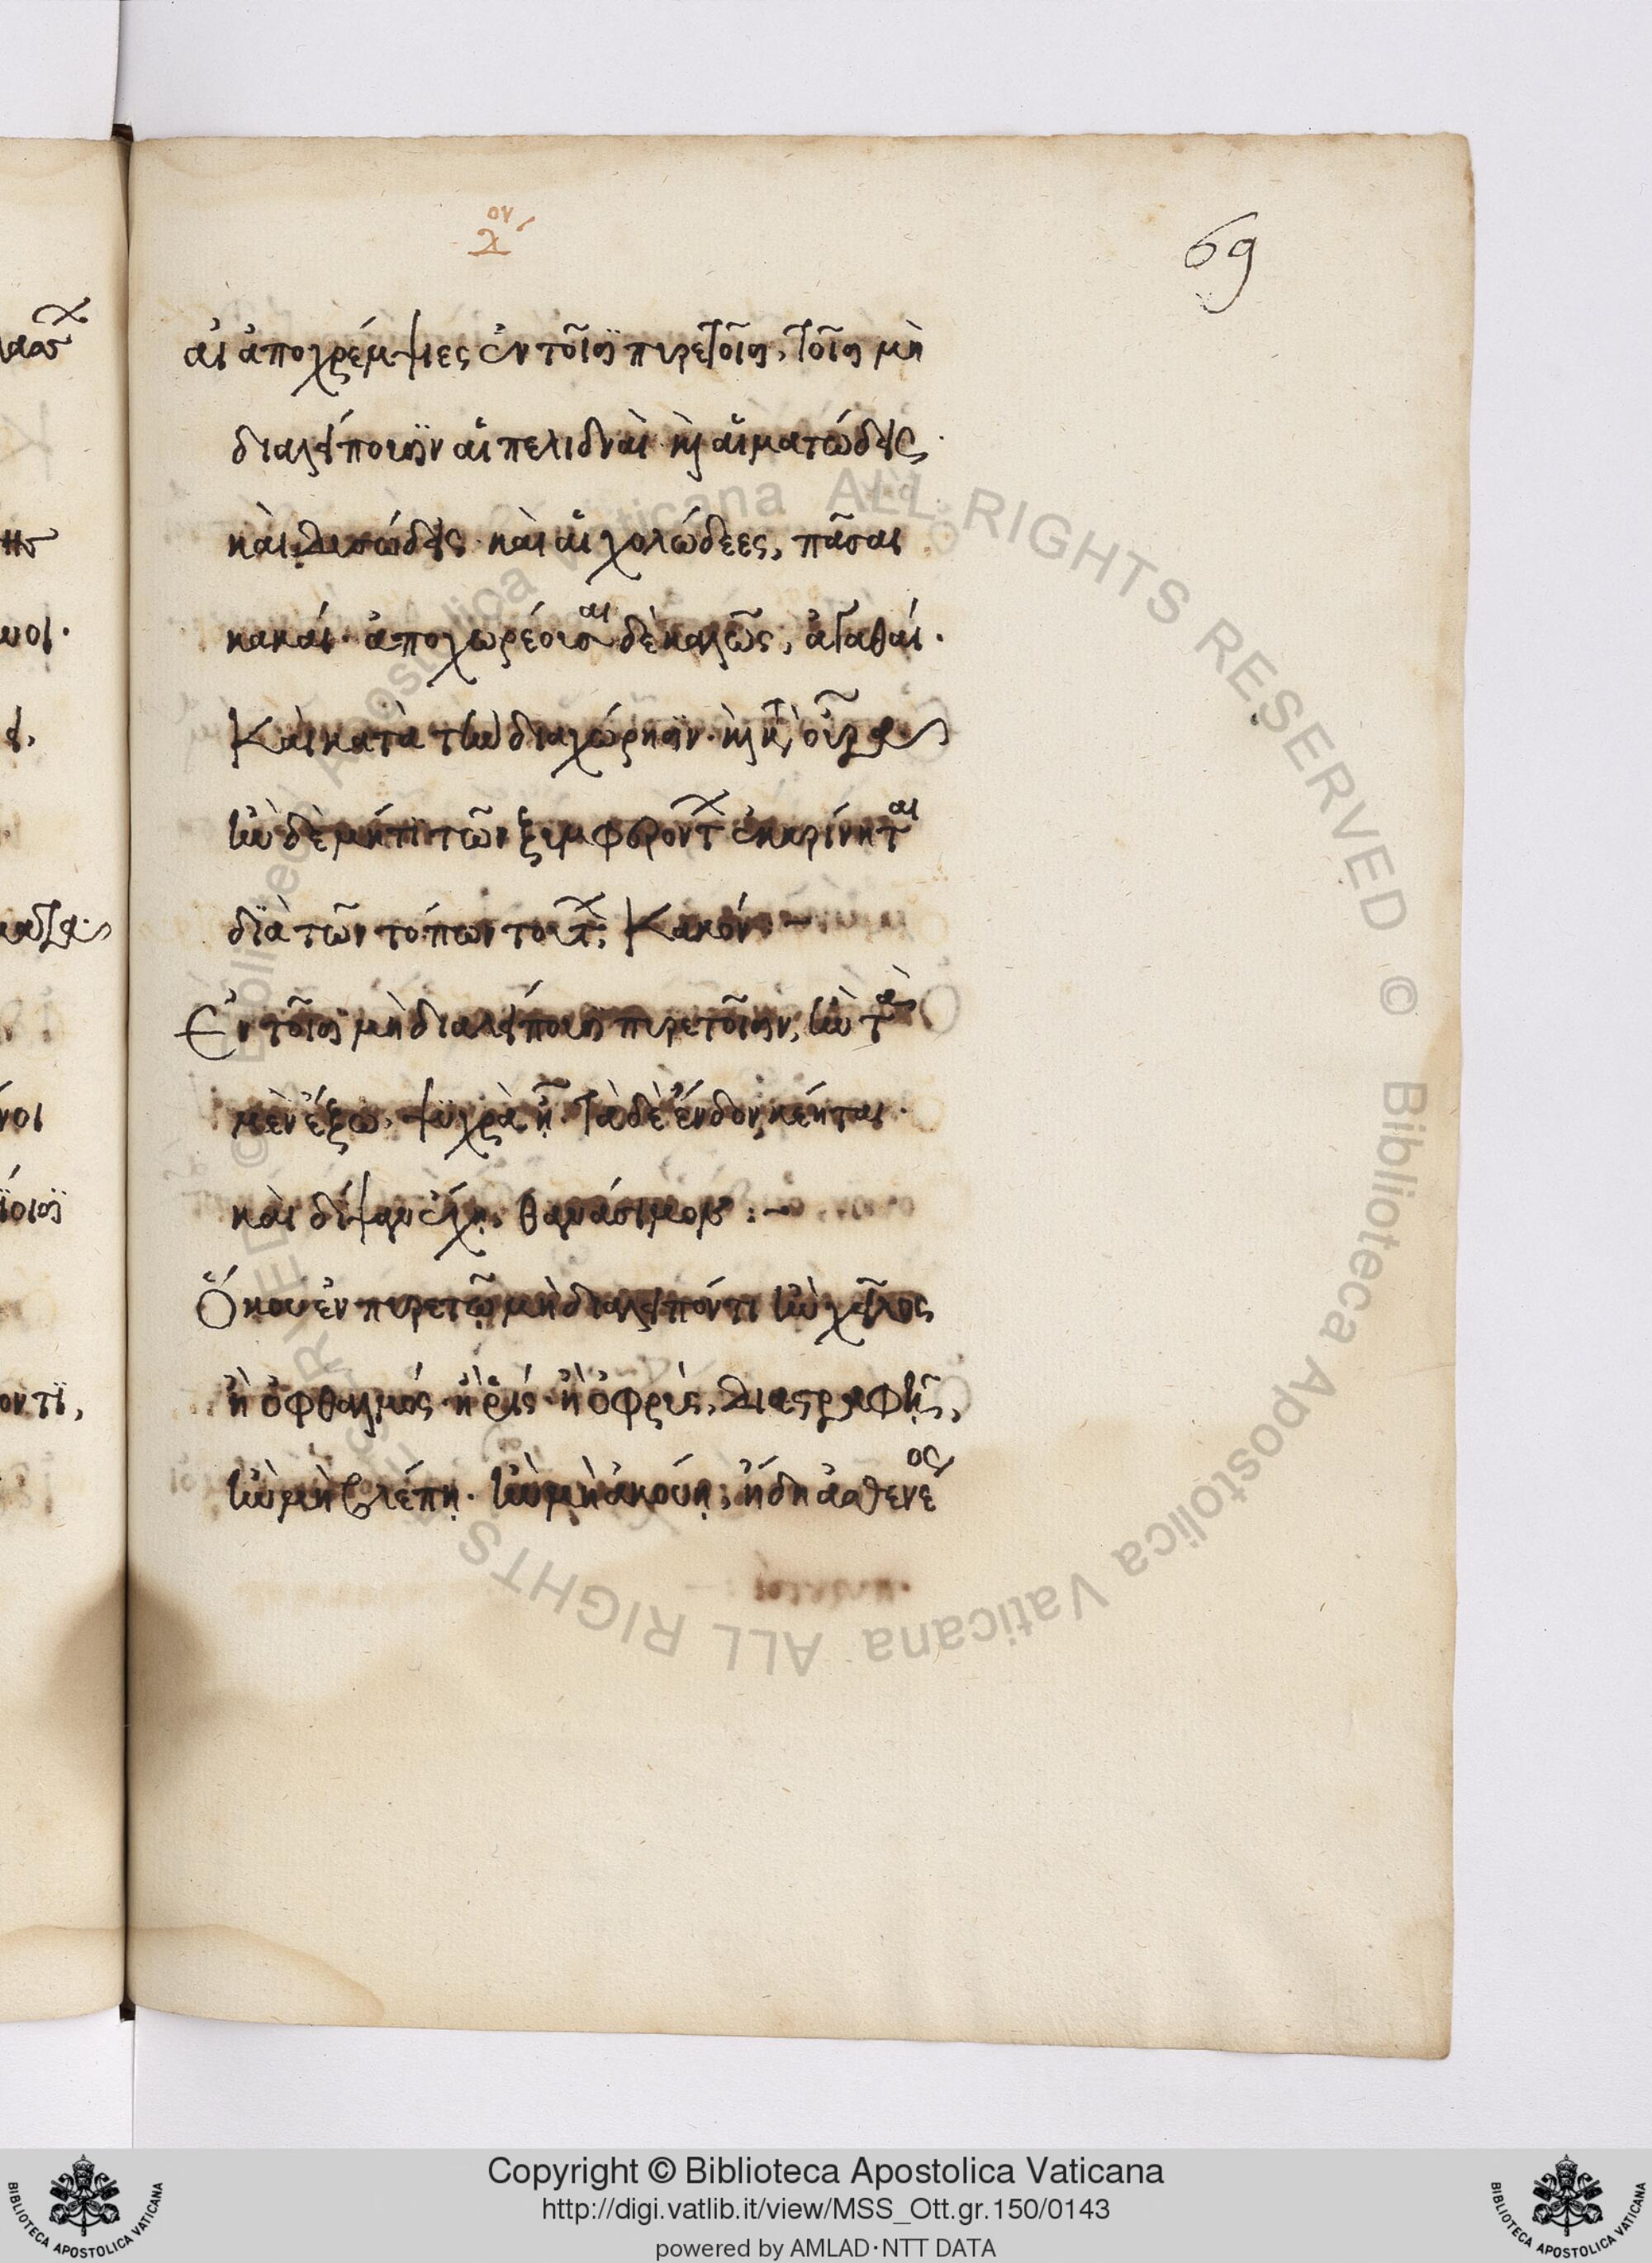 69
αἱ ἀποχρέμψιες ἐν τοῖσι πυρετοῖσι, τοῖσι μὴ
διαλείπουσιν αἱ πελιδναὶ καὶ αἱματώδεις
καὶ δυσώδεις καὶ αἱ χολώδεες, πᾶσαι
κακαί· ἀποχωρέουσαι δὲ καλῶς, ἀγαθαί·
Καὶ κατὰ τὴν διαχώρησιν· καὶ κατὰ οὖρα
ἢν δὲ μή τι τῶν ξυμφερόντων ἐκκρίνηται
διὰ τῶν τόπων τούτων, Κακόν:–
Ἐν τοῖσι μὴ διαλείπουσι πυρετοῖσιν, ἢν τὰ
μὲν ἔξω, ψυχρὰ ᾖ· τὰ δὲ ἔνδον, κέηται·
καὶ δίψαν ἔχῃ, θανάσιμον:–
Ὅκου ἐν πυρετῷ μὴ διαλείποντι ἢν χεῖλος
ἢ ὀφθαλμός· ἢ ῥίς· ἢ ὀφρύς, διαστραφῇ,
ἢν μὴ βλέπῃ· ἢν μὴ ἀκούῃ, ἤδη ἀσθενέος
Copyright © Biblioteca Apostolica Vaticana
http://digi.vatlib.it/view/MSS_Ott.gr.150/0143
powered by AMLAD·NTT DATA
BIBLIOTECA APOSTOLICA VATICANA
BIBLIOTECA APOSTOLICA VATICANA
© Biblioteca Apostolica Vaticana ALL RIGHTS RESERVED © Biblioteca Apostolica Vaticana ALL RIGHTS RESERVED